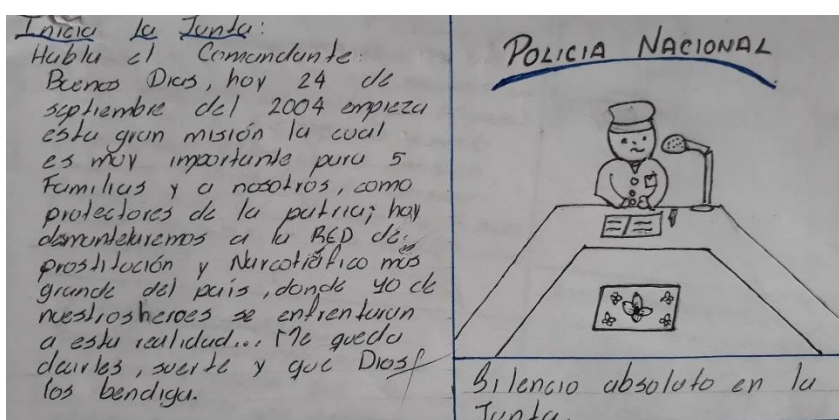 Inicia la Junta:
Habla el Comandante:
Buenos Dias, hoy 24 de
septiembre del 2004 empieza
esta gran misión la cual
es muy importante para 5
Familias y a nosotros, como
protectores de la patria; hoy
desmantelaremos a la RED de
prostitución y Narcotráfico más
grande del país, donde 40 de
nuestros heroes se enfrentaran
a esta realidad... Me queda
decirles, suerte y que Dios
los bendiga.
POLICIA NACIONAL
Silencio absoluto en la
Junta.